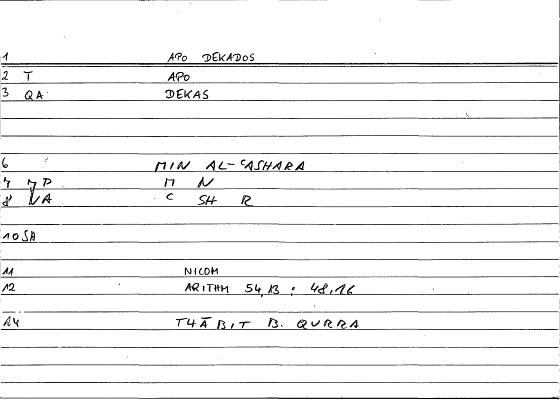 1 APO DEKADOS
2 T APO
3 QA DEKAS
6 MIN AL-ʿASHARA
7 M N
8 NA ʿ SH R
10 SA
11 NICOM
12 ARITHM 54,13 : 48,16
14 THĀBIT B. QURRA